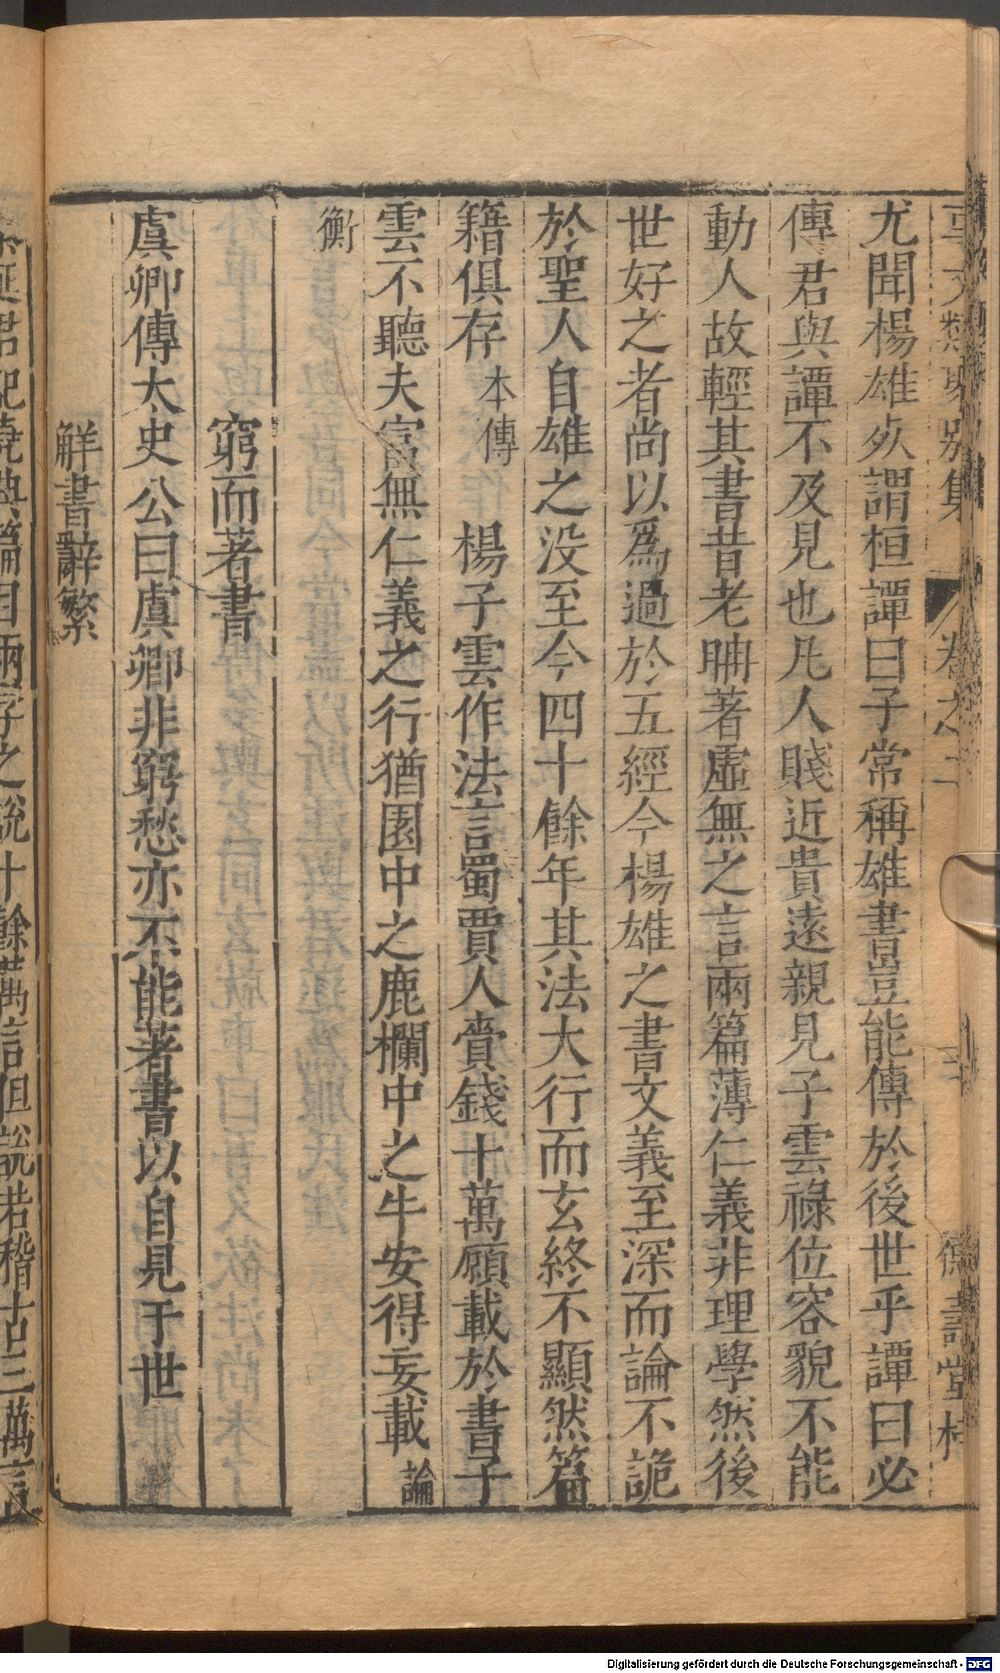 事文類聚別集 卷之二 三
尤聞楊雄死謂桓譚曰子常稱雄書豈能傳於後世乎譚曰必
傳君與譚不及見也凡人賤近貴遠親見子雲祿位容貌不能
動人故輕其書昔老聃著虛無之言兩篇薄仁義非理學然後
世好之者尚以爲過於五經今楊雄之書文義至深而論不詭
於聖人自雄之没至今四十餘年其法大行而玄終不顯然篇
籍俱存 本傳 楊子雲作法言蜀賈人賫錢十萬願載於書子
雲不聽夫富無仁義之行猶園中之鹿欄中之牛安得妄載 論
衡
窮而著書
虞卿傳太史公曰虞卿非窮愁亦不能著書以自見于世
觧書辭繁
延君記堯典篇目兩字之説十餘萬言但説若稽古三萬言
Digitalisierung gefördert durch die Deutsche Forschungsgemeinschaft - DFG